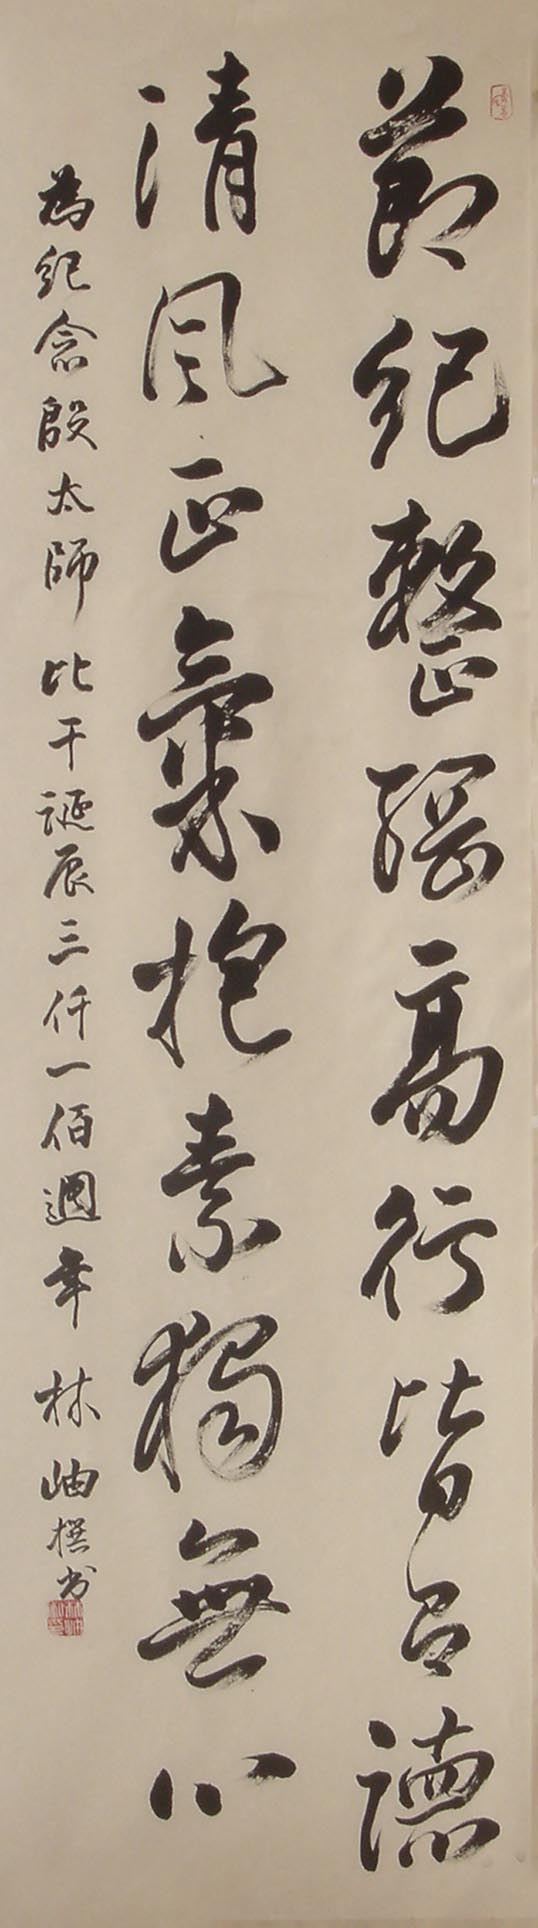 節紀整綱高行皆㠯德
清風正氣抱素獨無心
為紀念殷太師 比干誕辰三仟一佰週年 林岫撰书